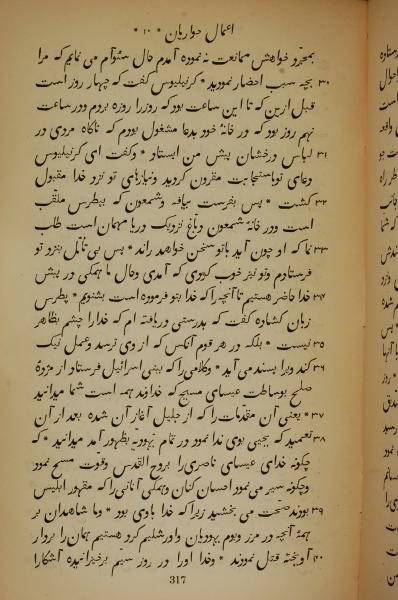 اعمال حواریان * ۱۰ *
بمجرّد خواهش ممانعت نه نموده آمدم حال سئوآم می نمایم که مرا
۳۰ بچه سبب احضار نمودید * کرنیلیوس گفت که چهار روز است
قبل ازین که تا این ساعت بود که روزرا روزه بودم ودر ساعت
نهم روز بود که در خانهٔ خود بدعا مشغول بودم که ناکاه مردی در
۳۱ لباس درخشان پیش من ایستاد * وکفت ای کرنیلیوس
دعای تو باستجابت مقرون کردید ونیازهای تو نزد خدا مقبول
۳۲ کشت * پس بفرست بیافه وشمعون که بپطرس ملقّب
است ودر خانهٔ شمعون دبّاغ نزدیک دریا مهمان است طلب
۳۳ نما که او چون آید باتو سخن خواهد راند * پس بی تأمّل بنزد تو
فرستادم وتو نیز خوب کردی که آمدی وحال ما همکی در پیش
خدا حاضر هستیم تا آنچه را که خدا بتو فرموده است بشنویم * پطرس
۳۴ زبان کشاده کفت که بدرستی دریافته ام که خدارا چشم بظاهر
۳۵ نیست * بلکه در هر قوم آنکس که از وی ترسد وعمل نیک
۳۶ کند ویرا پسند می آید * وکلامی را که ببنی اسرائیل فرستاد از مژدهٔ
صلح بوساطت عیسای مسیح که خداوند همه است شما میدانید
۳۷ * یعنی آن مقدمات را که از جلیل آغاز آن شده بعد از آن
۳۸ تعمید که یحیی بوی ندا نمود در تمام یهودیه بظهور آمد میدانید * که
چکونه خدای عیسای ناصری را بروح القدس وقوت مسح نمود
وچکونه سیر می نمود احسان کنان وهمکی آنانی را که مقهور ابلیس
۳۹ بودند صحت می بخشید زیرا که خدا باوی بود * وما شاهدان بر
همه آنچه در مرز وبوم یهودیان واورشلیم کرد هستیم همان را بردار
۴۰ آویخته قتل نمودند * وخدا اورا در روز سیّم برخیزانیده آشکارا
317